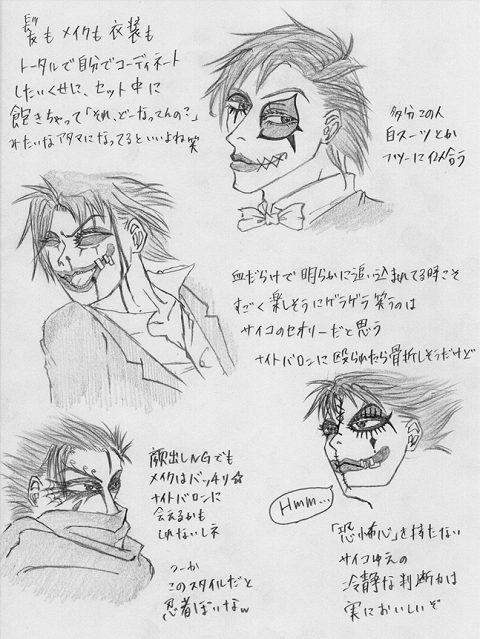 髪もメイクも衣装も
トータルで自分でコーディネート
したいくせに、セット中に
飽きちゃって「それ、どーなってんの?」
みたいなアタマになってるといいよね笑
多分この人
白スーツとか
フツーに似合う
血だらけで明らかに追い込まれてる時こそ
すごく楽しそうにゲラゲラ笑うのは
サイコのセオリーだと思う
ナイトバロンに殴られたら骨折しそうだけど
顔出しNGでも
メイクはバッチリ☆
ナイトバロンに
会えるかも
しれないしネ
つーか
このスタイルだと
忍者ぽいなw
Hmm...
「恐怖心」を持たない
サイコゆえの
冷静な判断力は
実においしいぞ